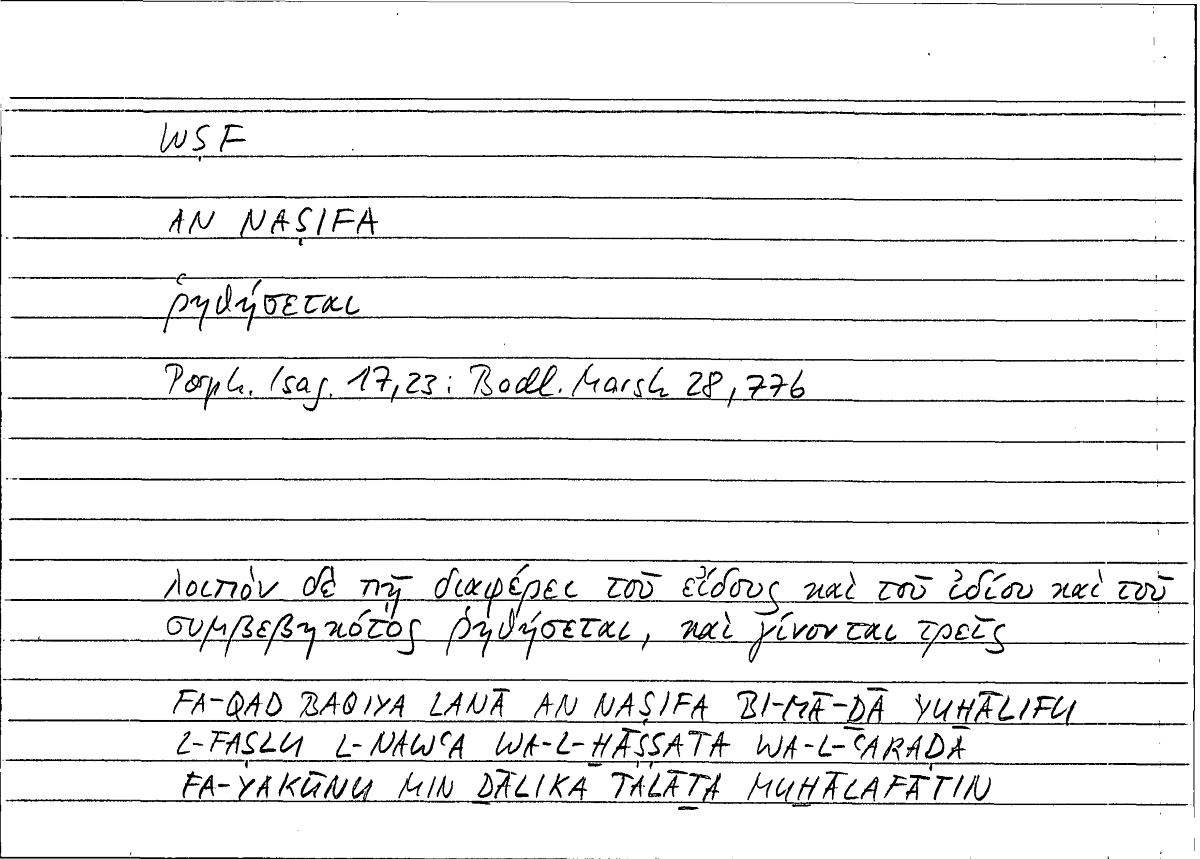 WṢF
AN NAṢIFA
ῥηθήσεται
Porph. Isag. 17,23: Bodl. Marsh 28,776
λοιπὸν δὲ πῇ διαφέρει τοῦ εἴδους καὶ τοῦ ἰδίου καὶ τοῦ
συμβεβηκότος ῥηθήσεται, καὶ γίνονται τρεῖς
FA-QAD BAQIYA LANĀ AN NAṢIFA BI-MĀ-ḎĀ YUH̱ĀLIFU
L-FAṢLU L-NAWʿA WA-L-H̱ĀṢṢATA WA-L-ʿARAḌA
FA-YAKŪNU MIN ḎĀLIKA TALĀṮA MUH̱ĀLAFĀTIN